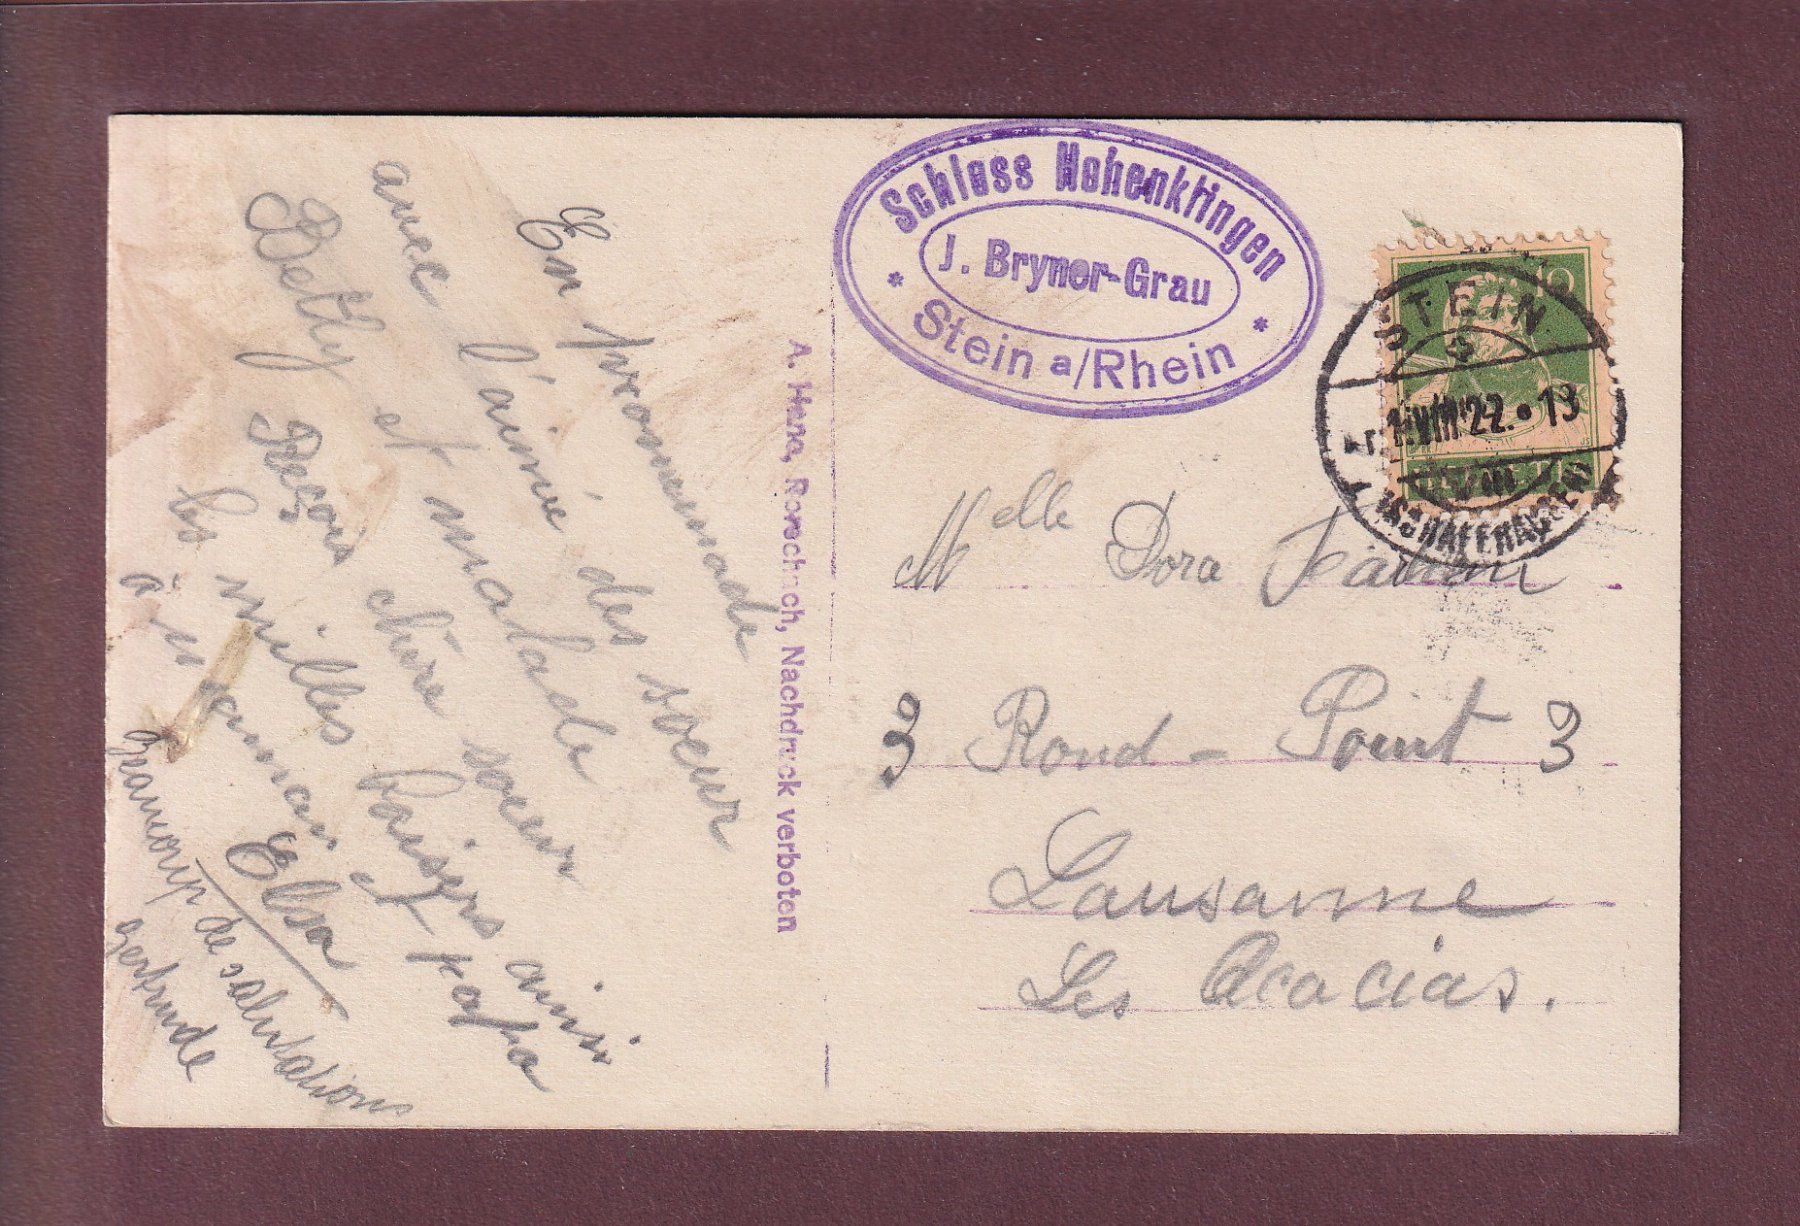 En promenade
avec l'aimé des soeur
Betty et malade
Reçois chère soeur
les milles baisers ainsi
à es et papa
Elsa
de salutations
Gertrude
A. Hane, Rorschach, Nachdruck verboten
Schloss Hohenklingen
J. Bryner-Grau
* Stein a/Rhein *
10
STEIN
1.VIII.22. 13
(SCHAFFHAUSEN)
Melle Dora
3 Rond-Point 3
Lausanne
Les Acacias.